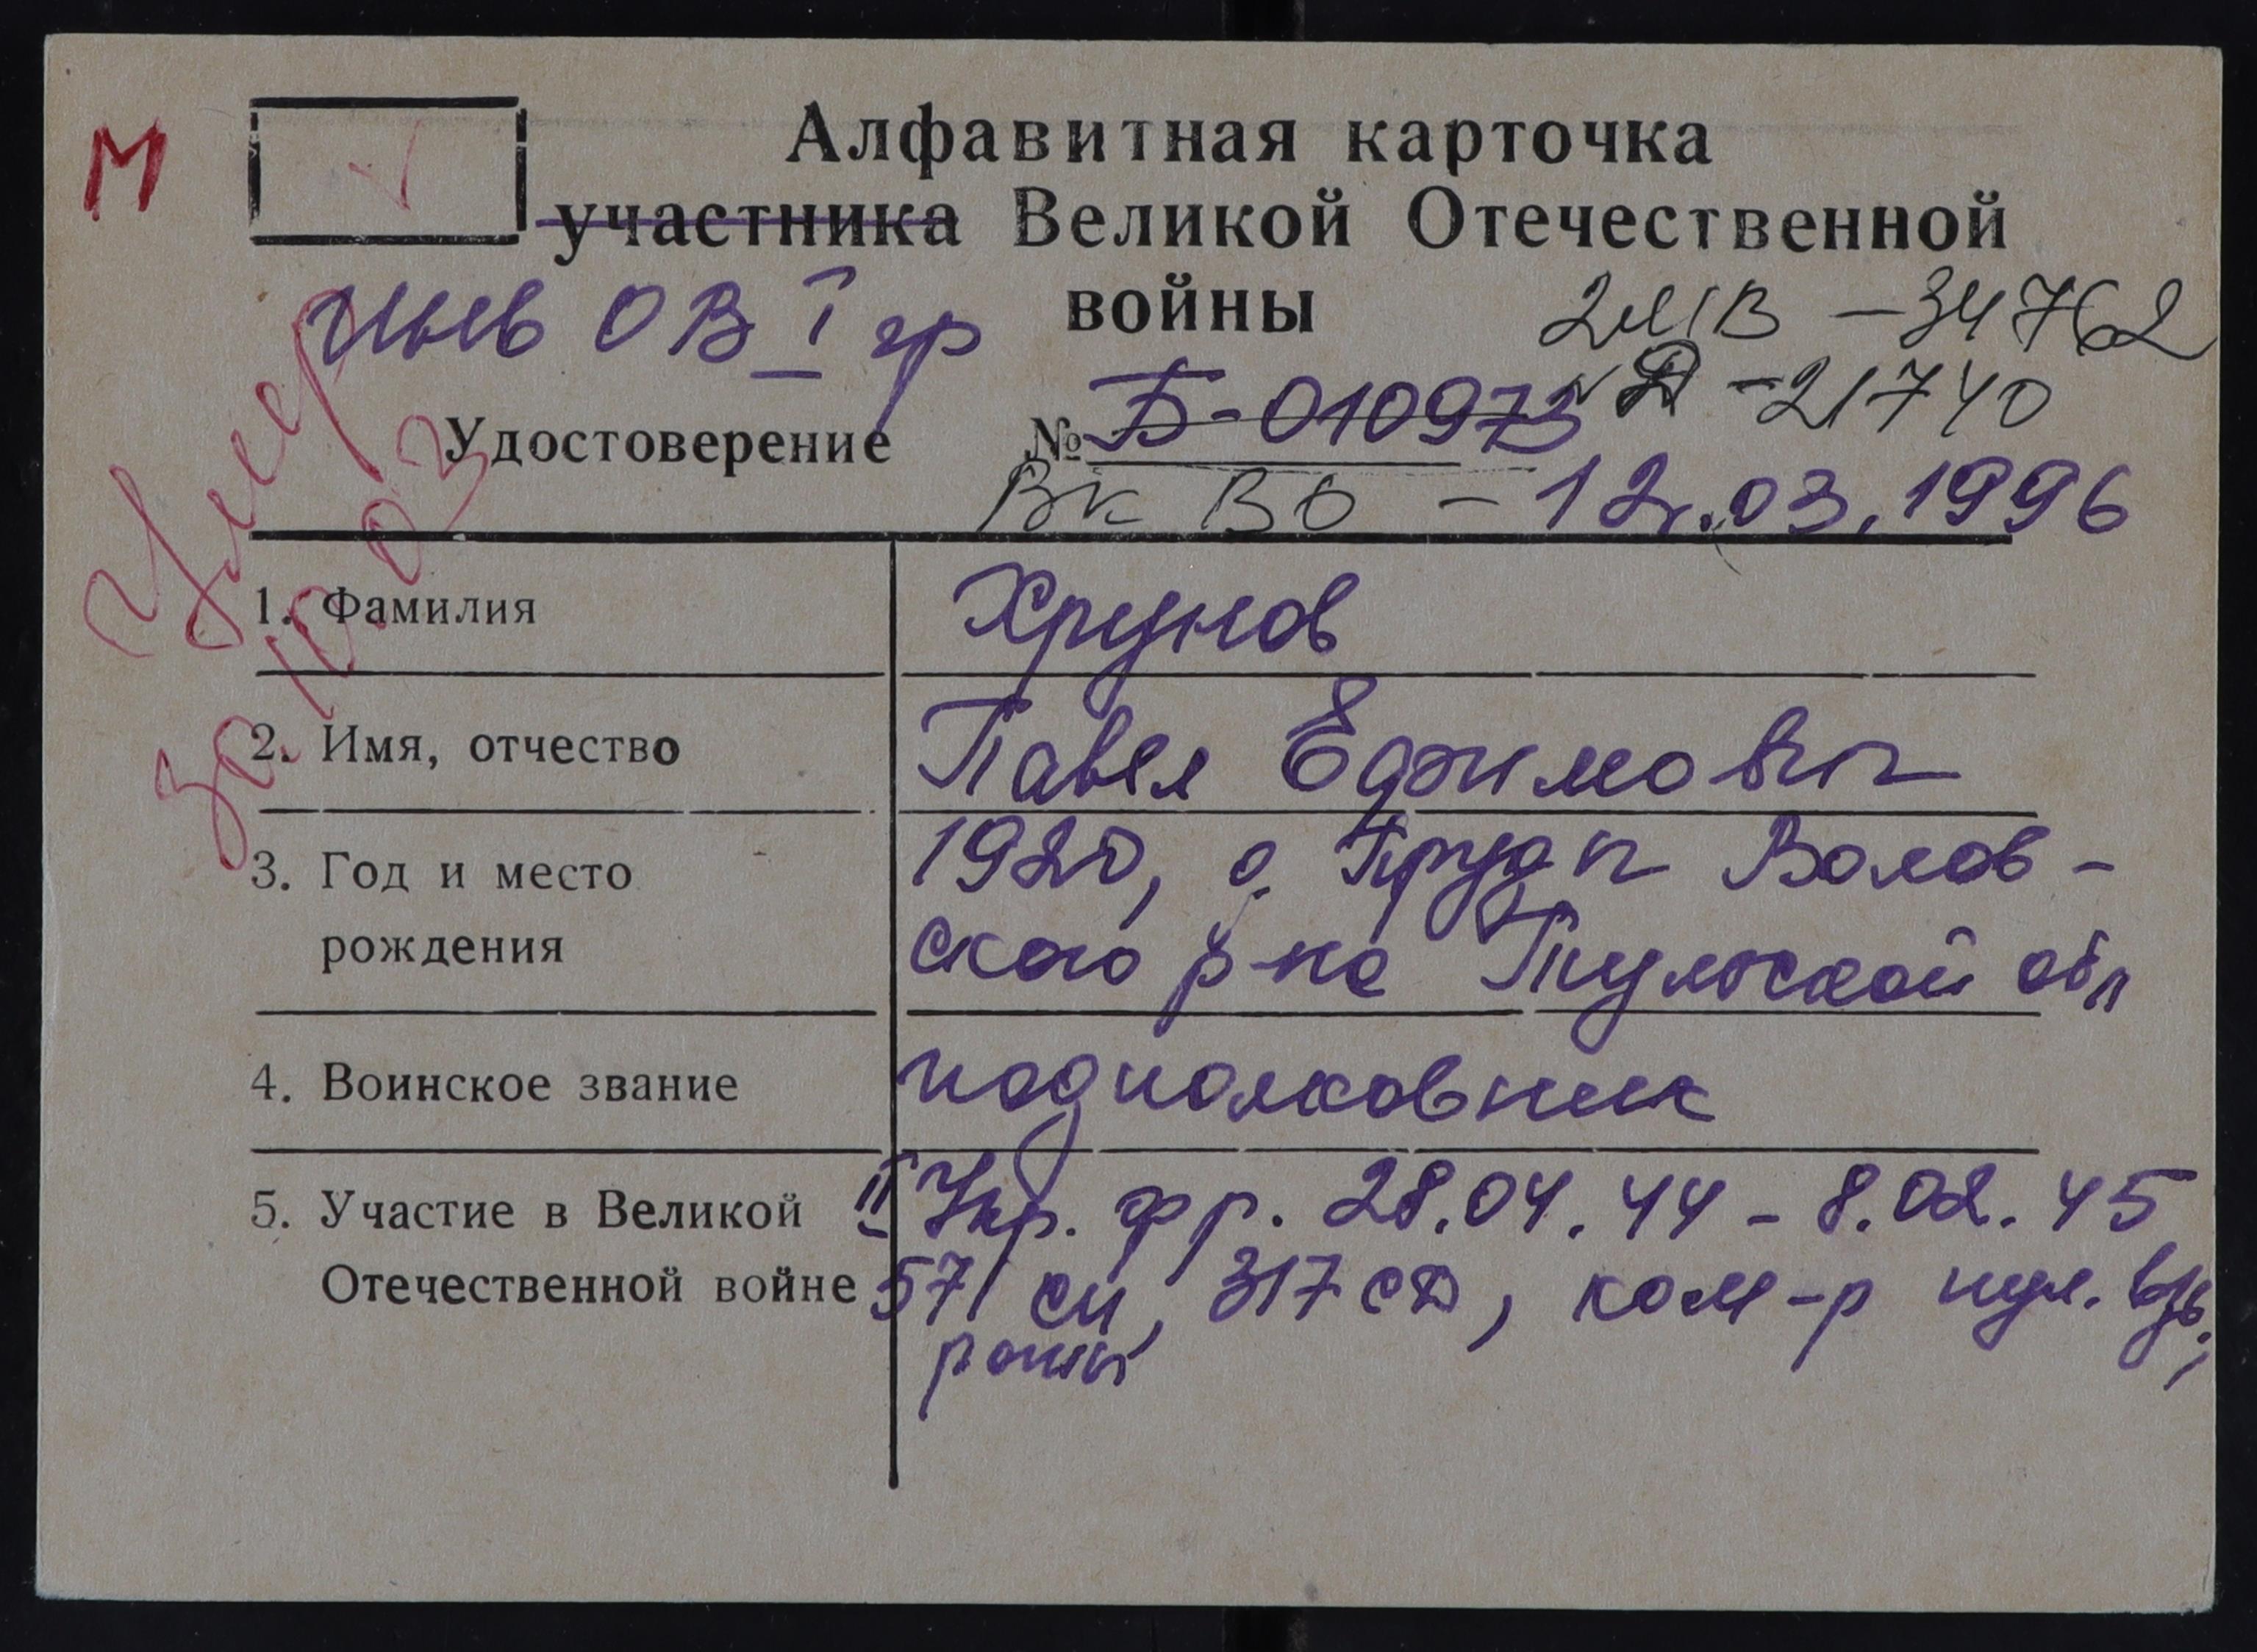 М
Алфавитная карточка
участника Великой Отечественной
войны
инв ОВ I гр
2МВ - 34762
Д - 21740
Удостоверение № Б-010975
ВК ВО - 12.03.1996
Умер
30.10.03
1. Фамилия Хрунов
2. Имя, отчество Павел Ефимович
3. Год и место 1920, с. Пруди Волов-
рождения ского р-на Тульской обл
4. Воинское звание подполковник
5. Участие в Великой II Укр. фр. 28.04.44 - 8.02.45
Отечественной войне 571 сп, 317 сд, ком-р пул. взв.,
роты